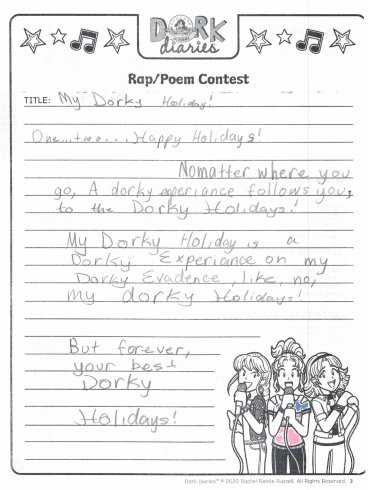 DORK
diaries
Rap/Poem Contest
TITLE: My Dorky Holiday!
One...two... Happy Holidays!
Nomatter where you
go, A dorky experiance follows you,
to the Dorky Holidays!
My Dorky Holiday is a
Dorky Experiance on my
Dorky Evadence, like, no,
my dorky Holidays!
But forever,
your best
Dorky
Holidays!
Dork Diaries™ © 2020 Rachel Renée Russell. All Rights Reserved. 3